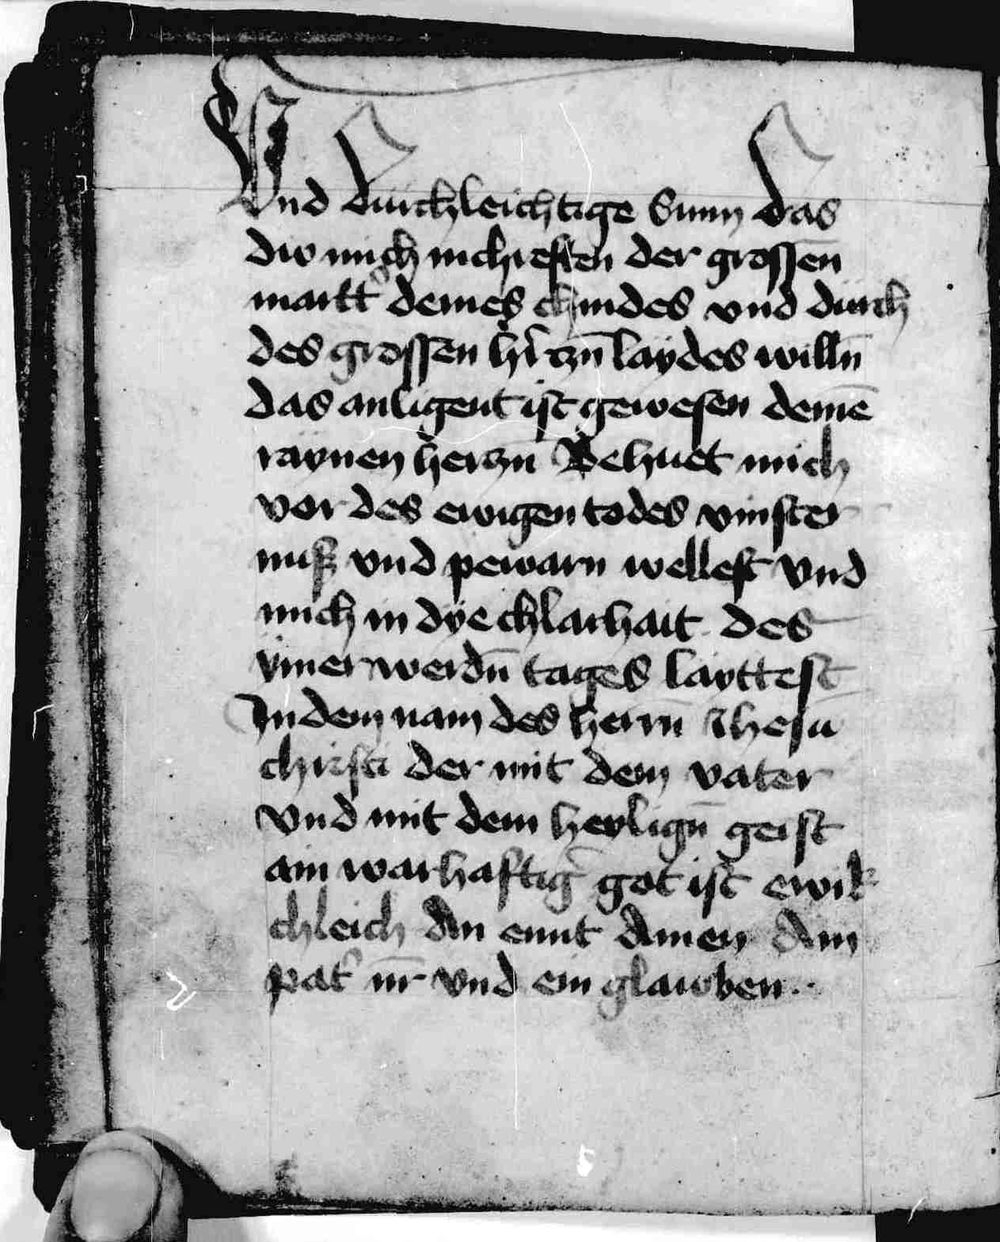 Vnd durchleichtige Sunn das
dw mich nich i esten der grossen
martt° deines chindes vnd durch
des grossen hertzn̄ laydes willn̄
das anligent ist gewesen deinē
raynen hertzn̄ Behuet mich
vor des ewigen todes vinster
nuſz vnd pewarn wellest vnd
mich in dye chlarhait des
ymerwerdn̄ tages layttest
In dem nam des herrn̄ Jhesū
christi der mit dem vater
vnd mit dem heylign̄ geist
ain warhaftig° got ist ewik
chleich An ennt Amen Ain
pat° nr̄ vnd ein glawben